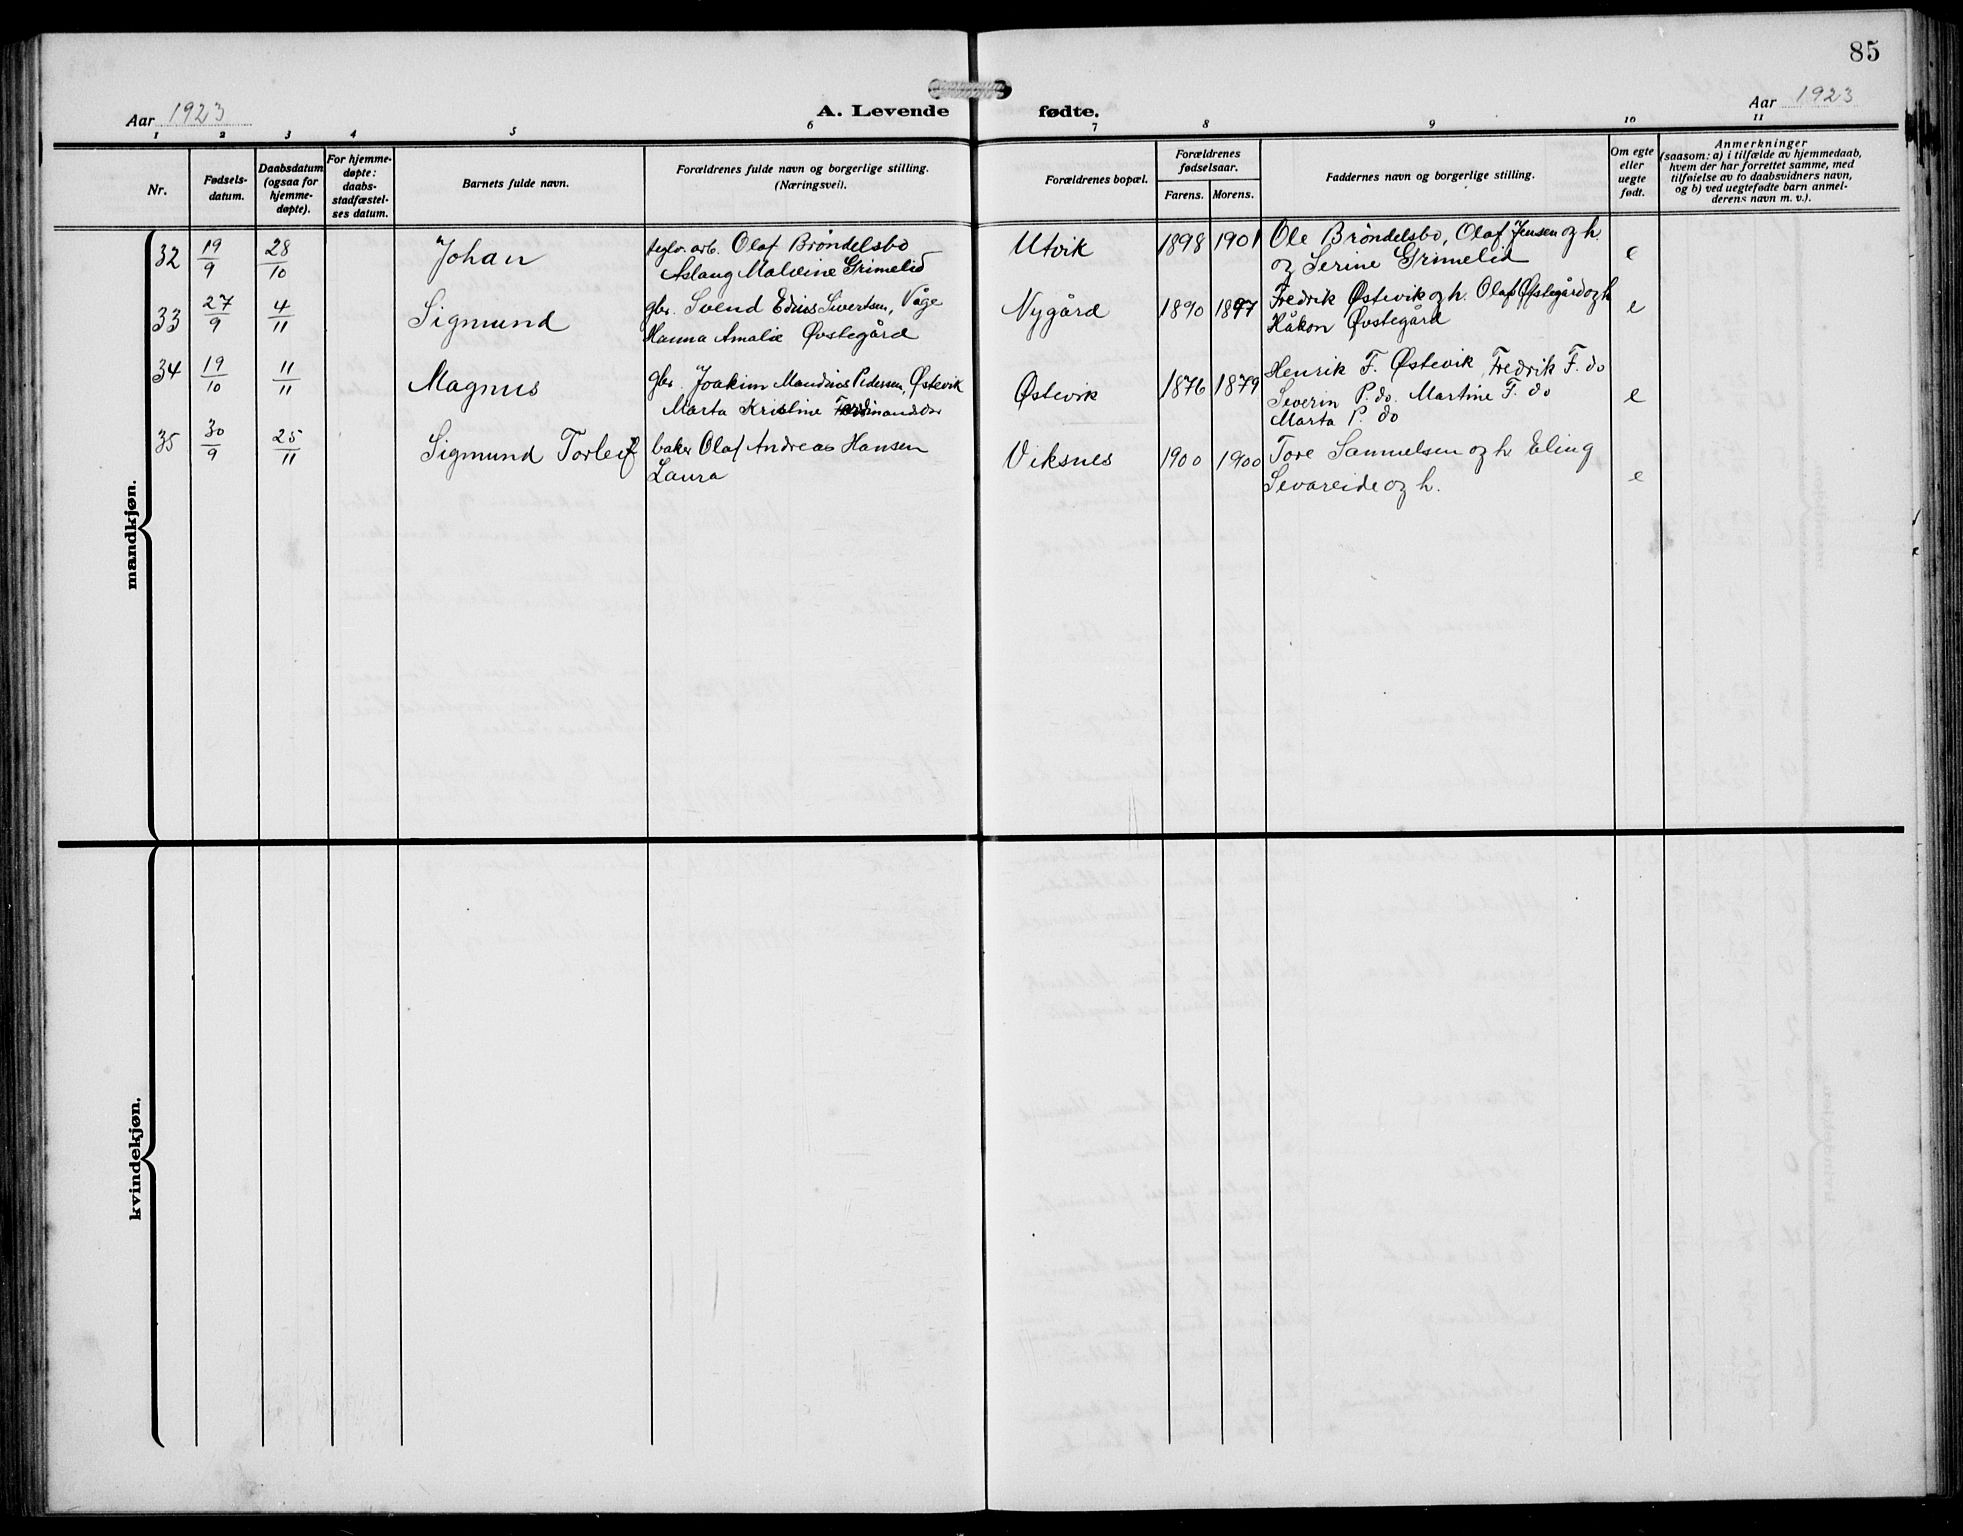 85
Aar 1923
A. Levende fødte.
Aar 1923
1 2 3 4 5 6 7 8 9 10 11
Nr.
Fødsels-
datum.
Daabsdatum
(ogsaa for
hjemme-
døpte).
For hjemme-
døpte:
daabs-
stadfæstel-
ses datum.
Barnets fulde navn.
Forældrenes fulde navn og borgerlige stilling.
(Næringsvei).
Forældrenes bopæl.
Forældrenes
fødselsaar.
Farens. Morens.
Faddernes navn og borgerlige stilling.
Om egte
eller
uegte
født.
Anmerkninger
(saasom: a) i tilfælde av hjemmedaab,
hvem der har forrettet samme, med
tilføielse av to daabsvidners navn,
og b) ved uegtefødte barn anmel-
derens navn m. v.).
mandkjøn.
32 19/9 28/10 Johan teglv. arb. Olaf Brøndelsbo Utvik 1898 1901 Ole Brøndelsbo, Olaf Jensen og h.
Aslaug Malvine Grimelid og Serine Grimelid e
33 27/9 4/11 Sigmund gbr. Svend Edius Sivertsen, Våge Nygård 1890 1897 Fredrik Østevik og h. Olaf Øvstegård og h
Hanna Amalie Øvstegård Håkon Øvstegård e
34 19/10 11/11 Magnus gbr. Joakim Mandius Pedersen, Østevik Østevik 1876 1879 Henrik F. Østevik, Fredrik F. do
Marta Kristine Ferdinandsdtr Severin P. do. Martine F. do e
Marta P. do
35 30/9 25/11 Sigmund Torleif baker Olaf Andreas Hansen Viksnes 1900 1900 Tore Sammelsen og h Eling
Laura Sevareide og h. e
kvindekjøn.